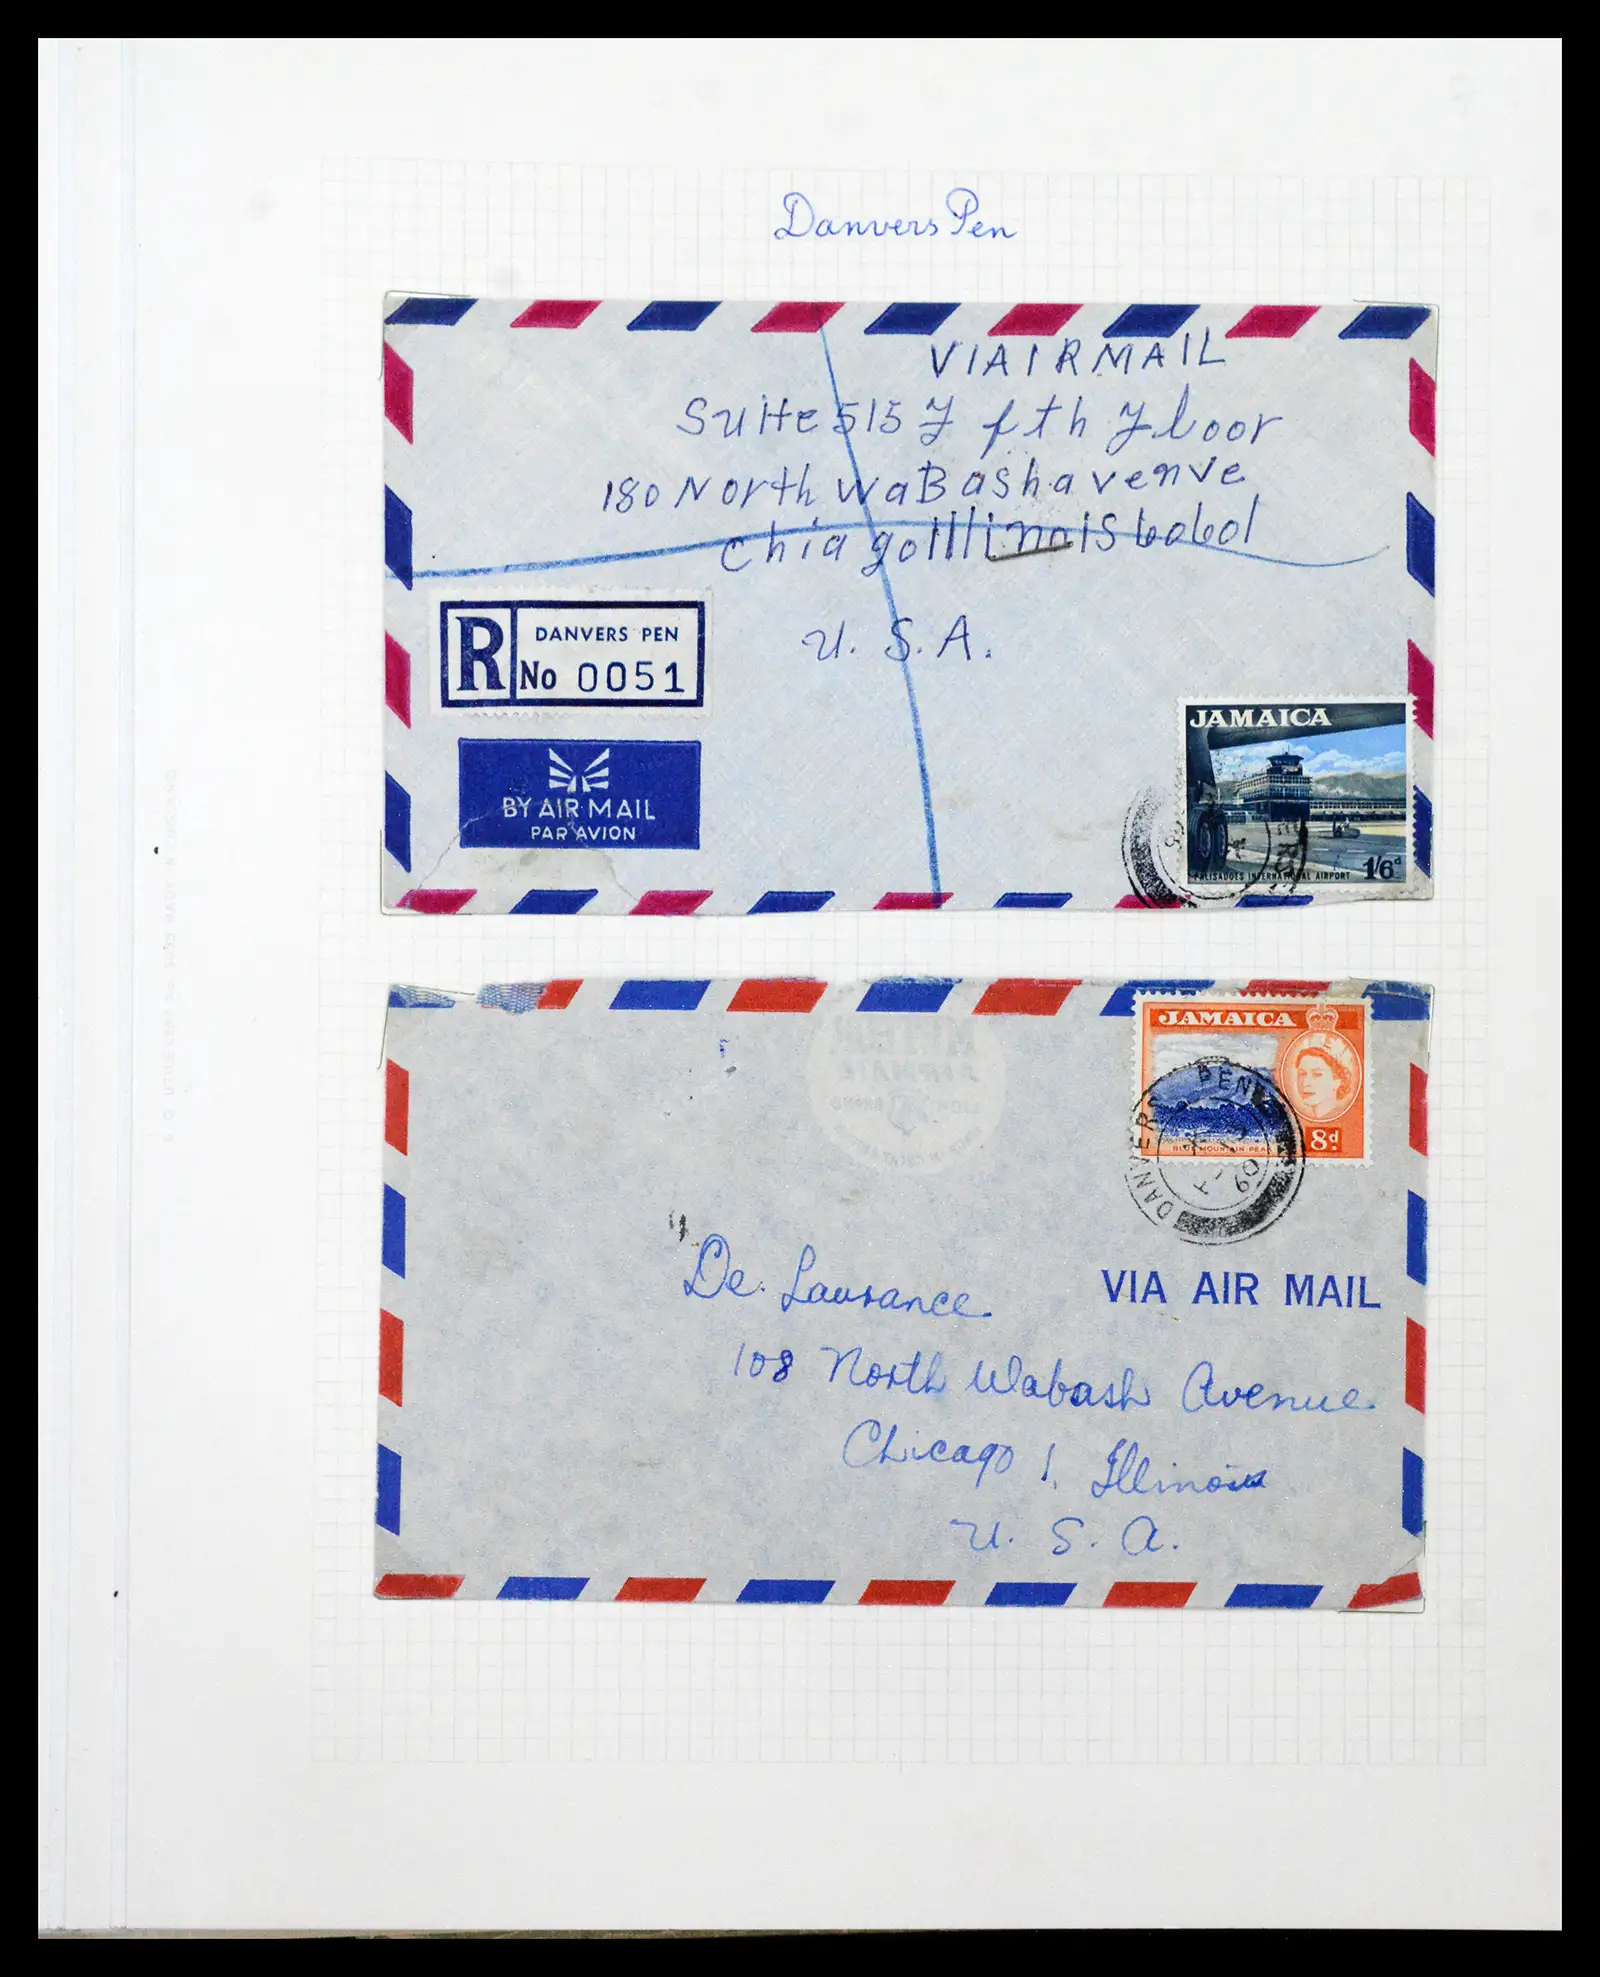 Danvers Pen
VIA AIRMAIL
Suite 515 Fifth Floor
180 North WaBash avenve
chiagoIllinois 60601
U.S.A.
R
DANVERS PEN
No 0051
BY AIR MAIL
PAR AVION
JAMAICA
PALISADOES INTERNATIONAL AIRPORT
1/6d
JAMAICA
BLUE MOUNTAIN PEAK
8d
DANVERS PEN
60
De. Laurance
VIA AIR MAIL
108 North Wabash Avenue.
Chicago 1. Illinois
U. S. A.